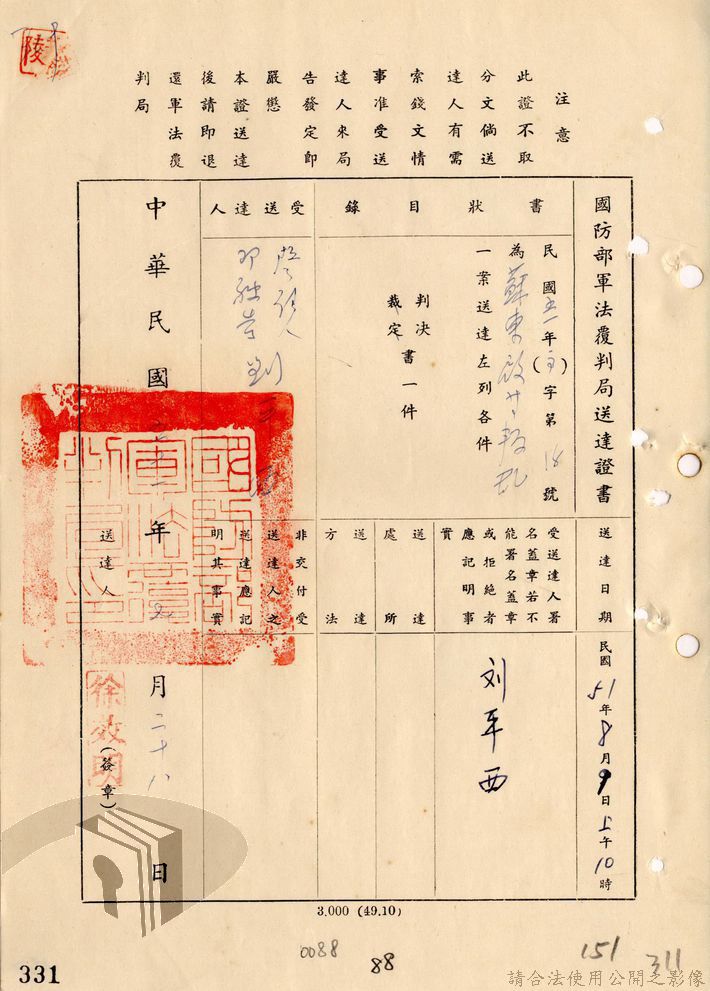 注意
此證不取
分文倘送
達人有需
索錢文情
事准受送
達人來局
告發定即
嚴懲
本證送達
後請即退
還軍法覆
判局
陵
國防部軍法覆判局送達證書
送達日期
民國51年8月9日上午10時
書狀目錄
民國五一年()字第18號
為蘇東啟廿叛乱
一案送達左列各件
判決
裁定
書一件
受送達人署
名蓋章若不
能署名蓋章
或拒絕者
應記明事
實
刘平西
送達處所
送達方法
受送達人
聲請人
劉
非交付受
送達人之
送達應記
明其事實
中華民國五十一年七月二十八日
送達人
徐效明
(簽章)
3,000 (49.10)
0088
88
151
311
331
請合法使用公開之影像